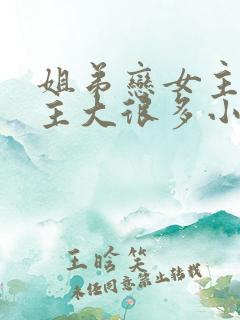 姐弟戀女主
主大很多小
王晗笑
未经同意禁止转载